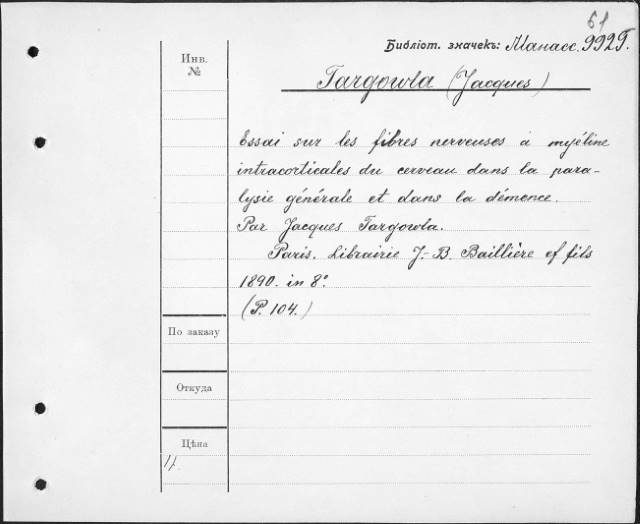 61
Библіот. значекъ: Манасс. 9925.
Инв.
№
Targowla (Jacques)
Essai sur les fibres nerveuses à myéline
intracorticales du cerveau dans la para-
lysie générale et dans la démence.
Par Jacques Targowla.
Paris. Librairie J.-B. Baillière et fils
1890. in 8°.
(P. 104.)
По заказу
Откуда
Цѣна